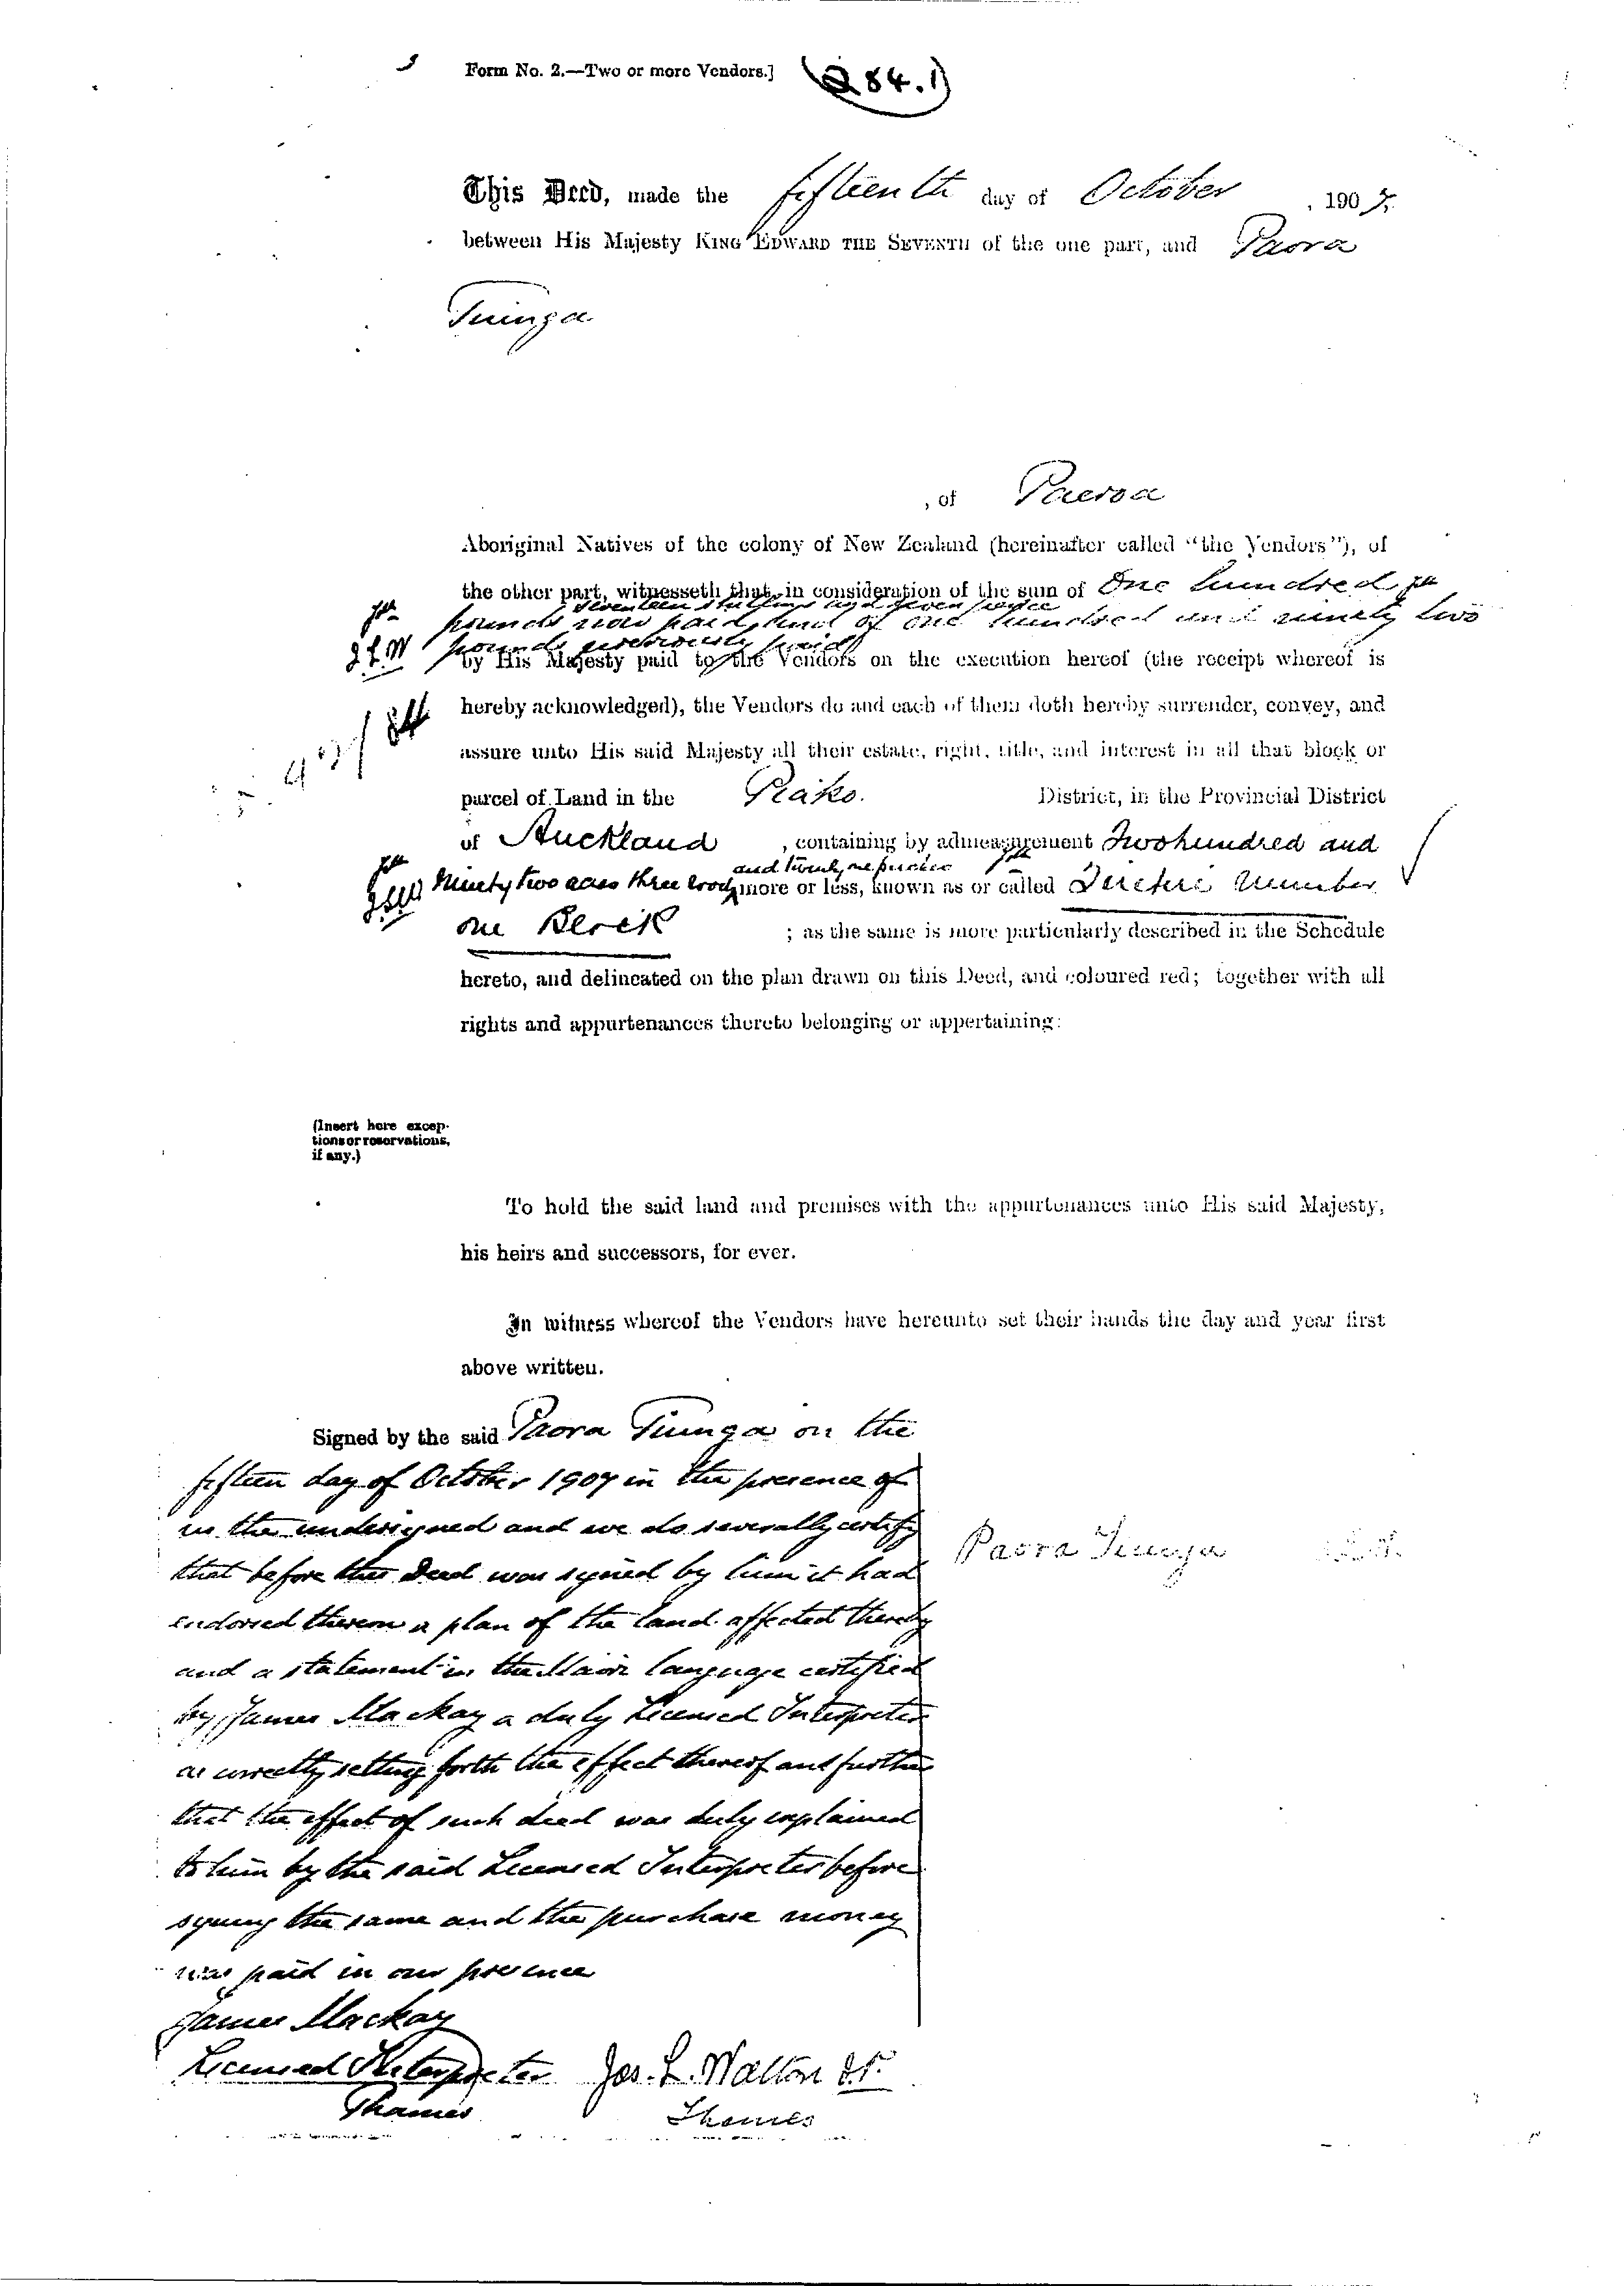 Form No. 2.—Two or more Vendors.]
284.1
This Deed, made the fifteenth day of October , 1907,
between His Majesty KING EDWARD THE SEVENTH of the one part, and Paora
Tiunga
, of Paeroa
Aboriginal Natives of the colony of New Zealand (hereinafter called "the Vendors"), of
the other part, witnesseth that in consideration of the sum of One hundred
seventeen shillings and seven pence
pounds now paid and of one hundred and ninety two
pounds previously paid
by His Majesty paid to the Vendors on the execution hereof (the receipt whereof is
hereby acknowledged), the Vendors do and each of them doth hereby surrender, convey, and
assure unto His said Majesty all their estate, right, title, and interest in all that block or
parcel of Land in the Piako. District, in the Provincial District
of Auckland , containing by admeasurement Two hundred and
and twenty one perches
Ninety two acres three roods more or less, known as or called Number
one Block ; as the same is more particularly described in the Schedule
hereto, and delineated on the plan drawn on this Deed, and coloured red; together with all
rights and appurtenances thereto belonging or appertaining:
(Insert here excep-
tions or reservations,
if any.)
To hold the said land and premises with the appurtenances unto His said Majesty,
his heirs and successors, for ever.
In witness whereof the Vendors have hereunto set their hands the day and year first
above written.
Signed by the said Paora Tiunga on the
fifteen day of October 1907 in the presence of
us the undersigned and we do severally certify
that before this Deed was signed by him it had
Paora Tiunga
endorsed thereon a plan of the land affected thereby
and a statement in the Maori language certified
by James Mackay a duly Licensed Interpreter
as correctly setting forth the effect thereof and further
that the effect of such deed was duly explained
to him by the said Licensed Interpreter before
signing the same and the purchase money
was paid in our presence
James Mackay
Licensed Interpreter Jos. L. Walton J.P.
Thames Thames